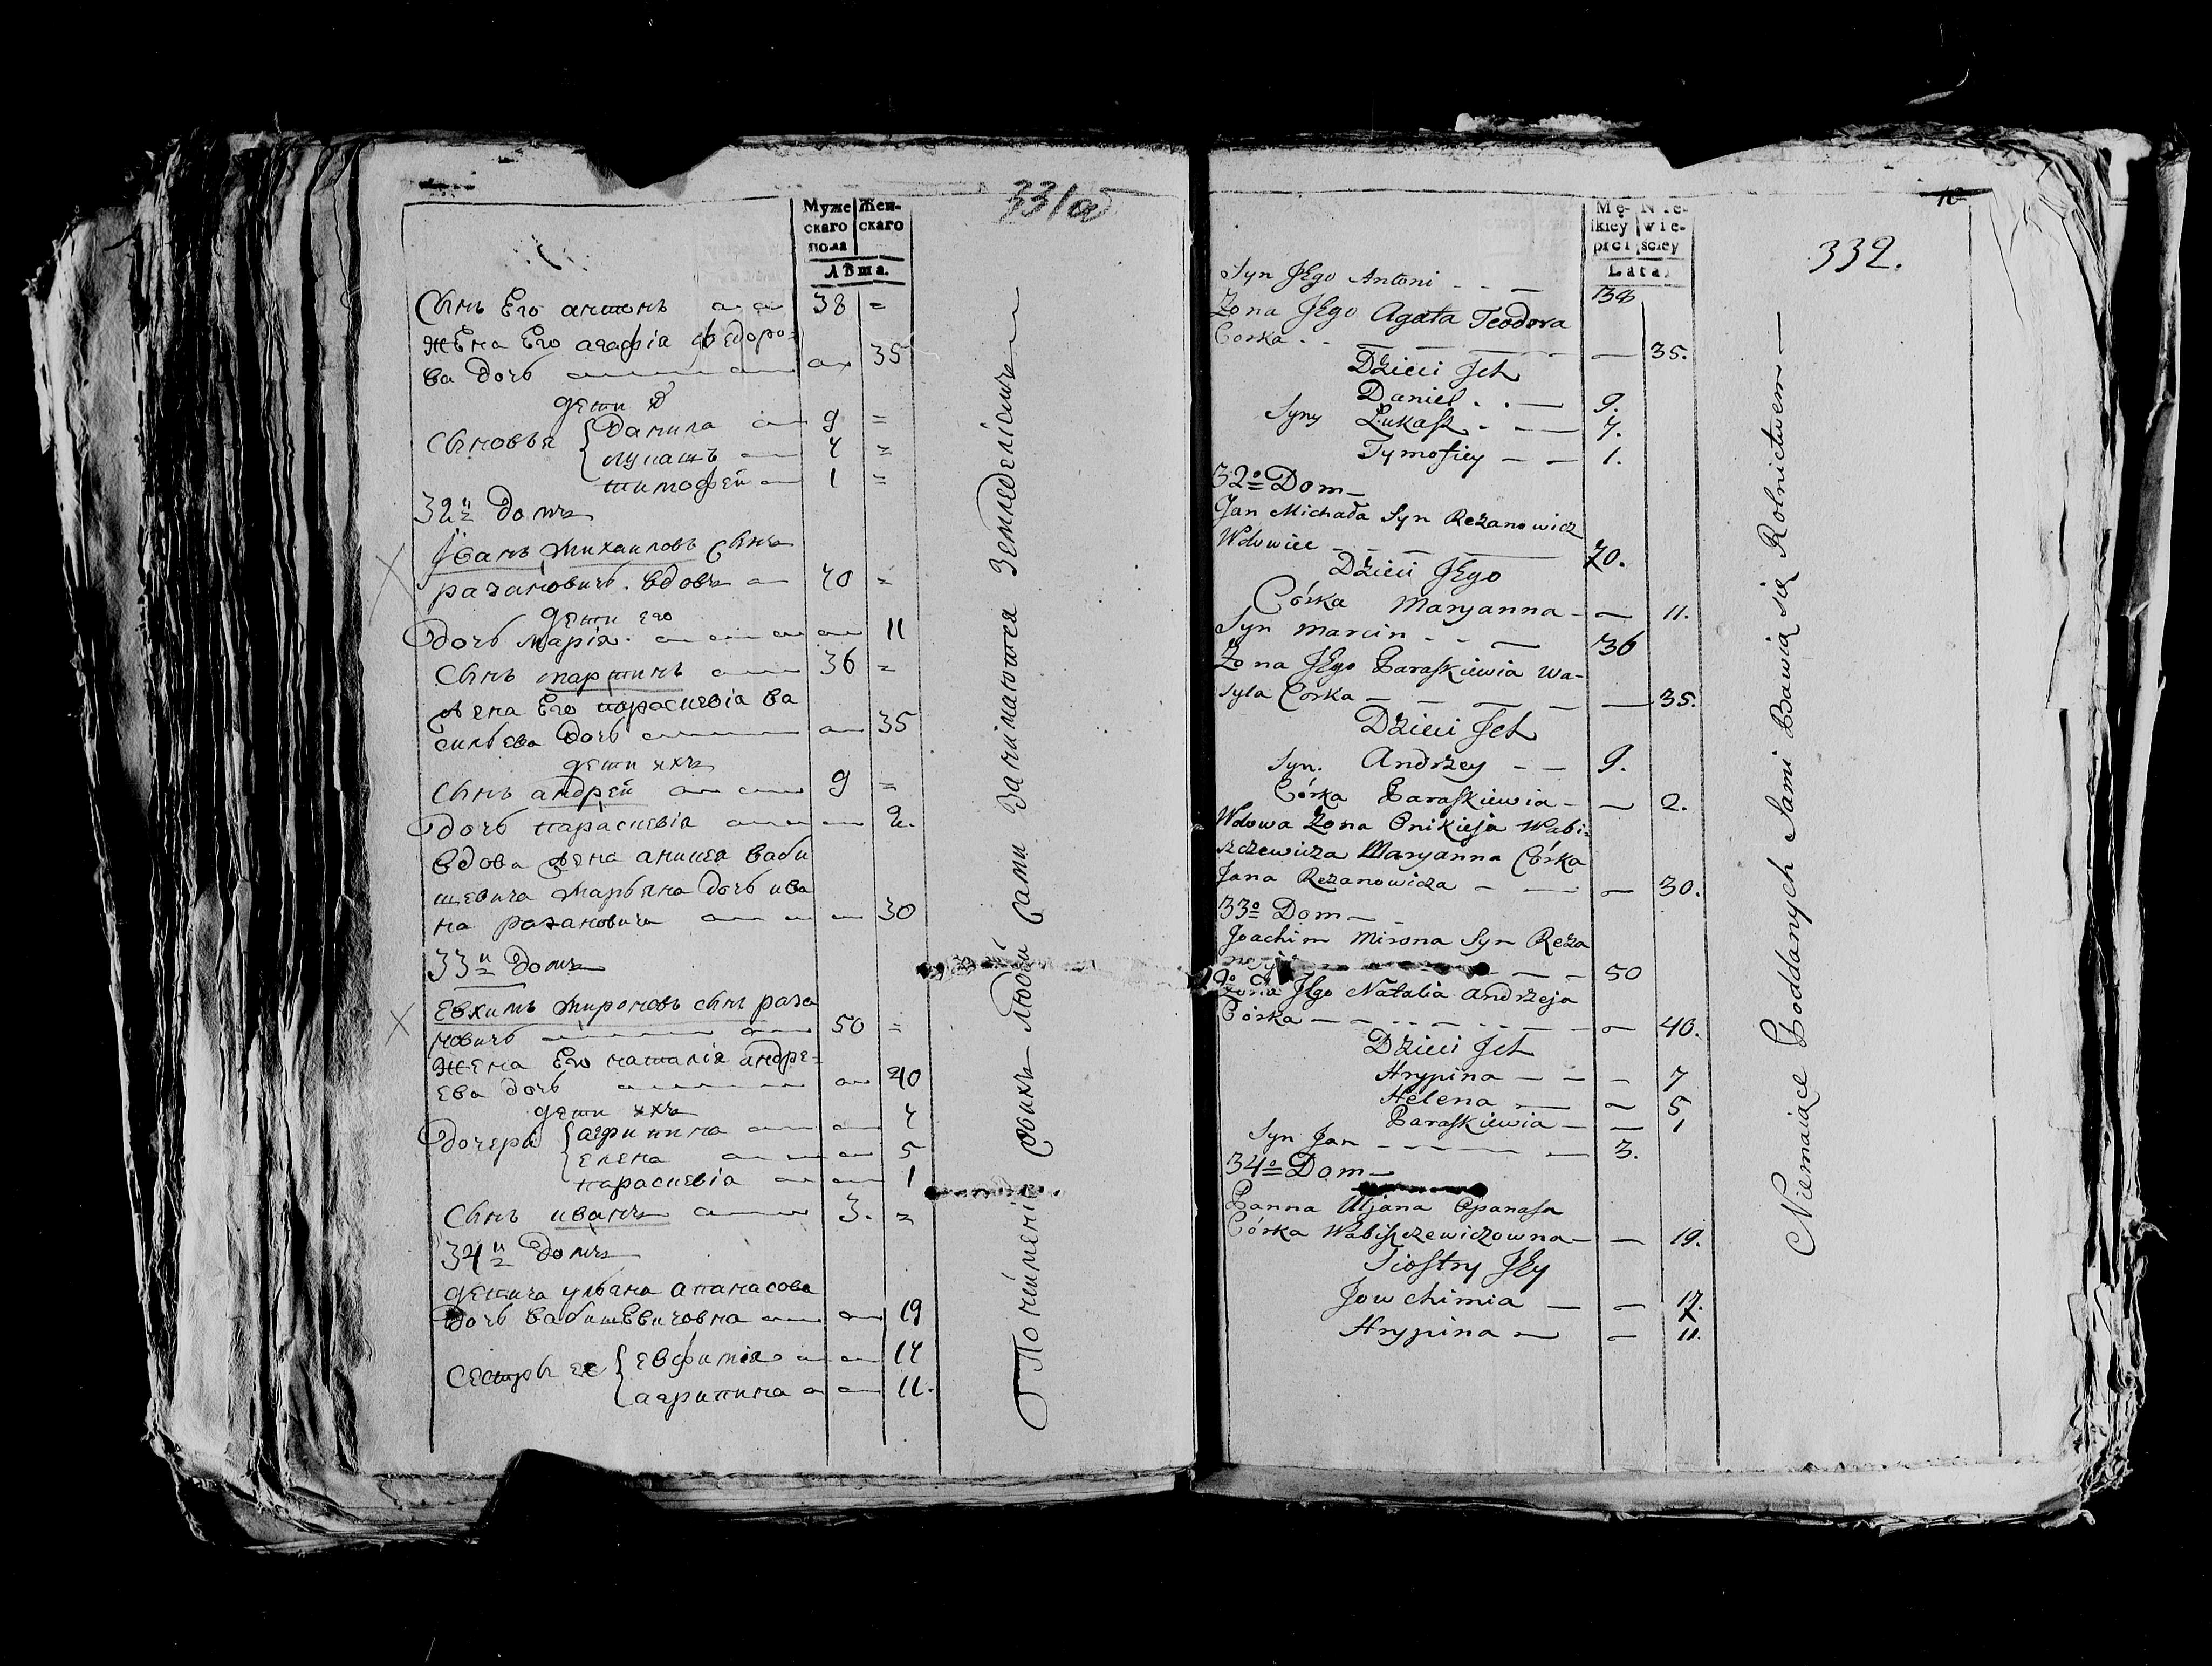 331об
Муже Жен-
скаго скаго
пола
Лѣта.
Сынъ Его антонъ 38 =
Жена Его агафія федоро=
ва дочь 35
дети
Сыновья { Данила 9 =
лукашъ 7 =
тимофей 1 =
32й Домъ
Иванъ Михаиловъ Сынъ
разановичъ вдовъ 70 =
дети его
Дочь марія 11
Сынъ мартинъ 36 =
Жена Его параскевіа ва
сильева дочь 35
дети ихъ
Сынъ андрей 9 =
Дочь параскевіа 2.
вдова жена аникея ваби
щевича Марьяна дочь ива
на разановича 30
33й Домъ
Евхимъ Мироновъ сынъ раза
новичъ 50 =
Жена Его наталія андре=
ева дочь 40
дети ихъ
Дочери { агрипина 7
елена 5
параскевіа 1
Сынъ иванъ 3. =
34й Домъ
девича ульяна апанасова
Дочь вабищевичовна 19
Сестры ее { евфимія 17
агрипина 11.
Понеименію Своихъ людей Сами Занимаются Земледеліемъ
12
332.
Mę- Nie-
skiey wie-
płci sciey
Lata.
Syn JEgo Antoni 38
Zona JEgo Agata Teodora
Corka 35.
Dzieci Jch
Daniel 9.
Syny Łukasz 7.
Tymofiey 1.
32o Dom
Jan Michała Syn Rezanowicz
Wdowiec 70.
Dzieci JEgo
Córka Maryanna 11.
Syn Marcin 36
Zona JEgo Paraskiewia Wa-
syla Corka 35.
Dzieci Jch
Syn. Andrzey 9.
Córka Paraskiewia 2.
Wdowa Zona Onikieja Wabi-
szczewicza Maryanna Córka
Jana Rezanowicza 30.
33o Dom
Joachim Mirona Syn Reza
50
Zona JEgo Natalia Andrzeja
Córka 40.
Dzieci Jch
Hrypina 7
Helena 5
Paraskiewia 1
Syn Jan 3.
34o Dom
Panna Uljana Opanasa
Córka Wabiszczewiczowna 19.
Siostry JEy
Jowchimia 17.
Hrypina 11.
Niemaiące Poddanych Sami Bawią się Rolnictwem